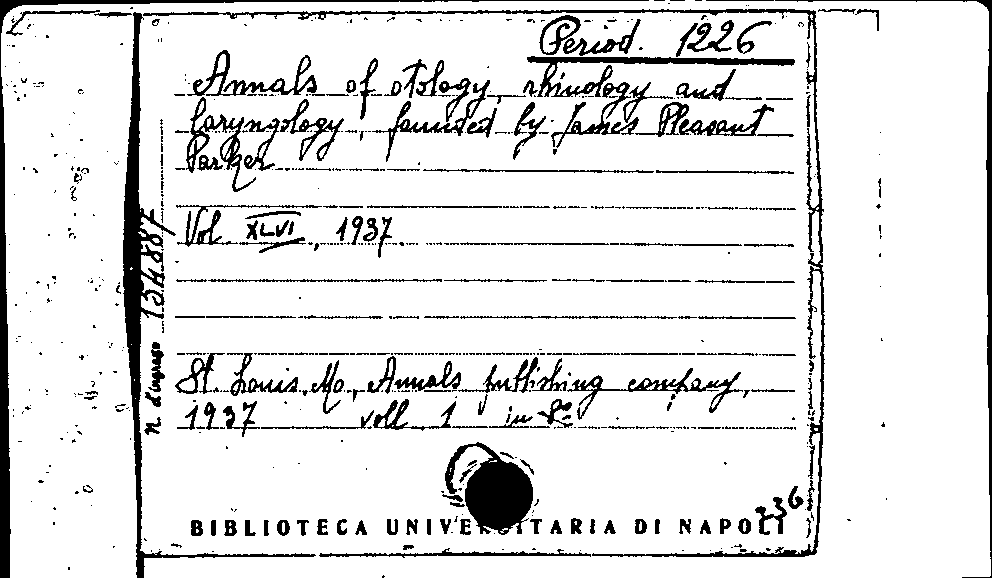 Period. 1226
Annals of otology, rhinology and
laryngology, founded by James Pleasant
Parker
Vol. XLVI, 1937.
N. d'ingresso 154887
St. Louis, Mo., Annals publishing company,
1937 voll. 1 in 8º
236
BIBLIOTECA UNIVERSITARIA DI NAPOLI